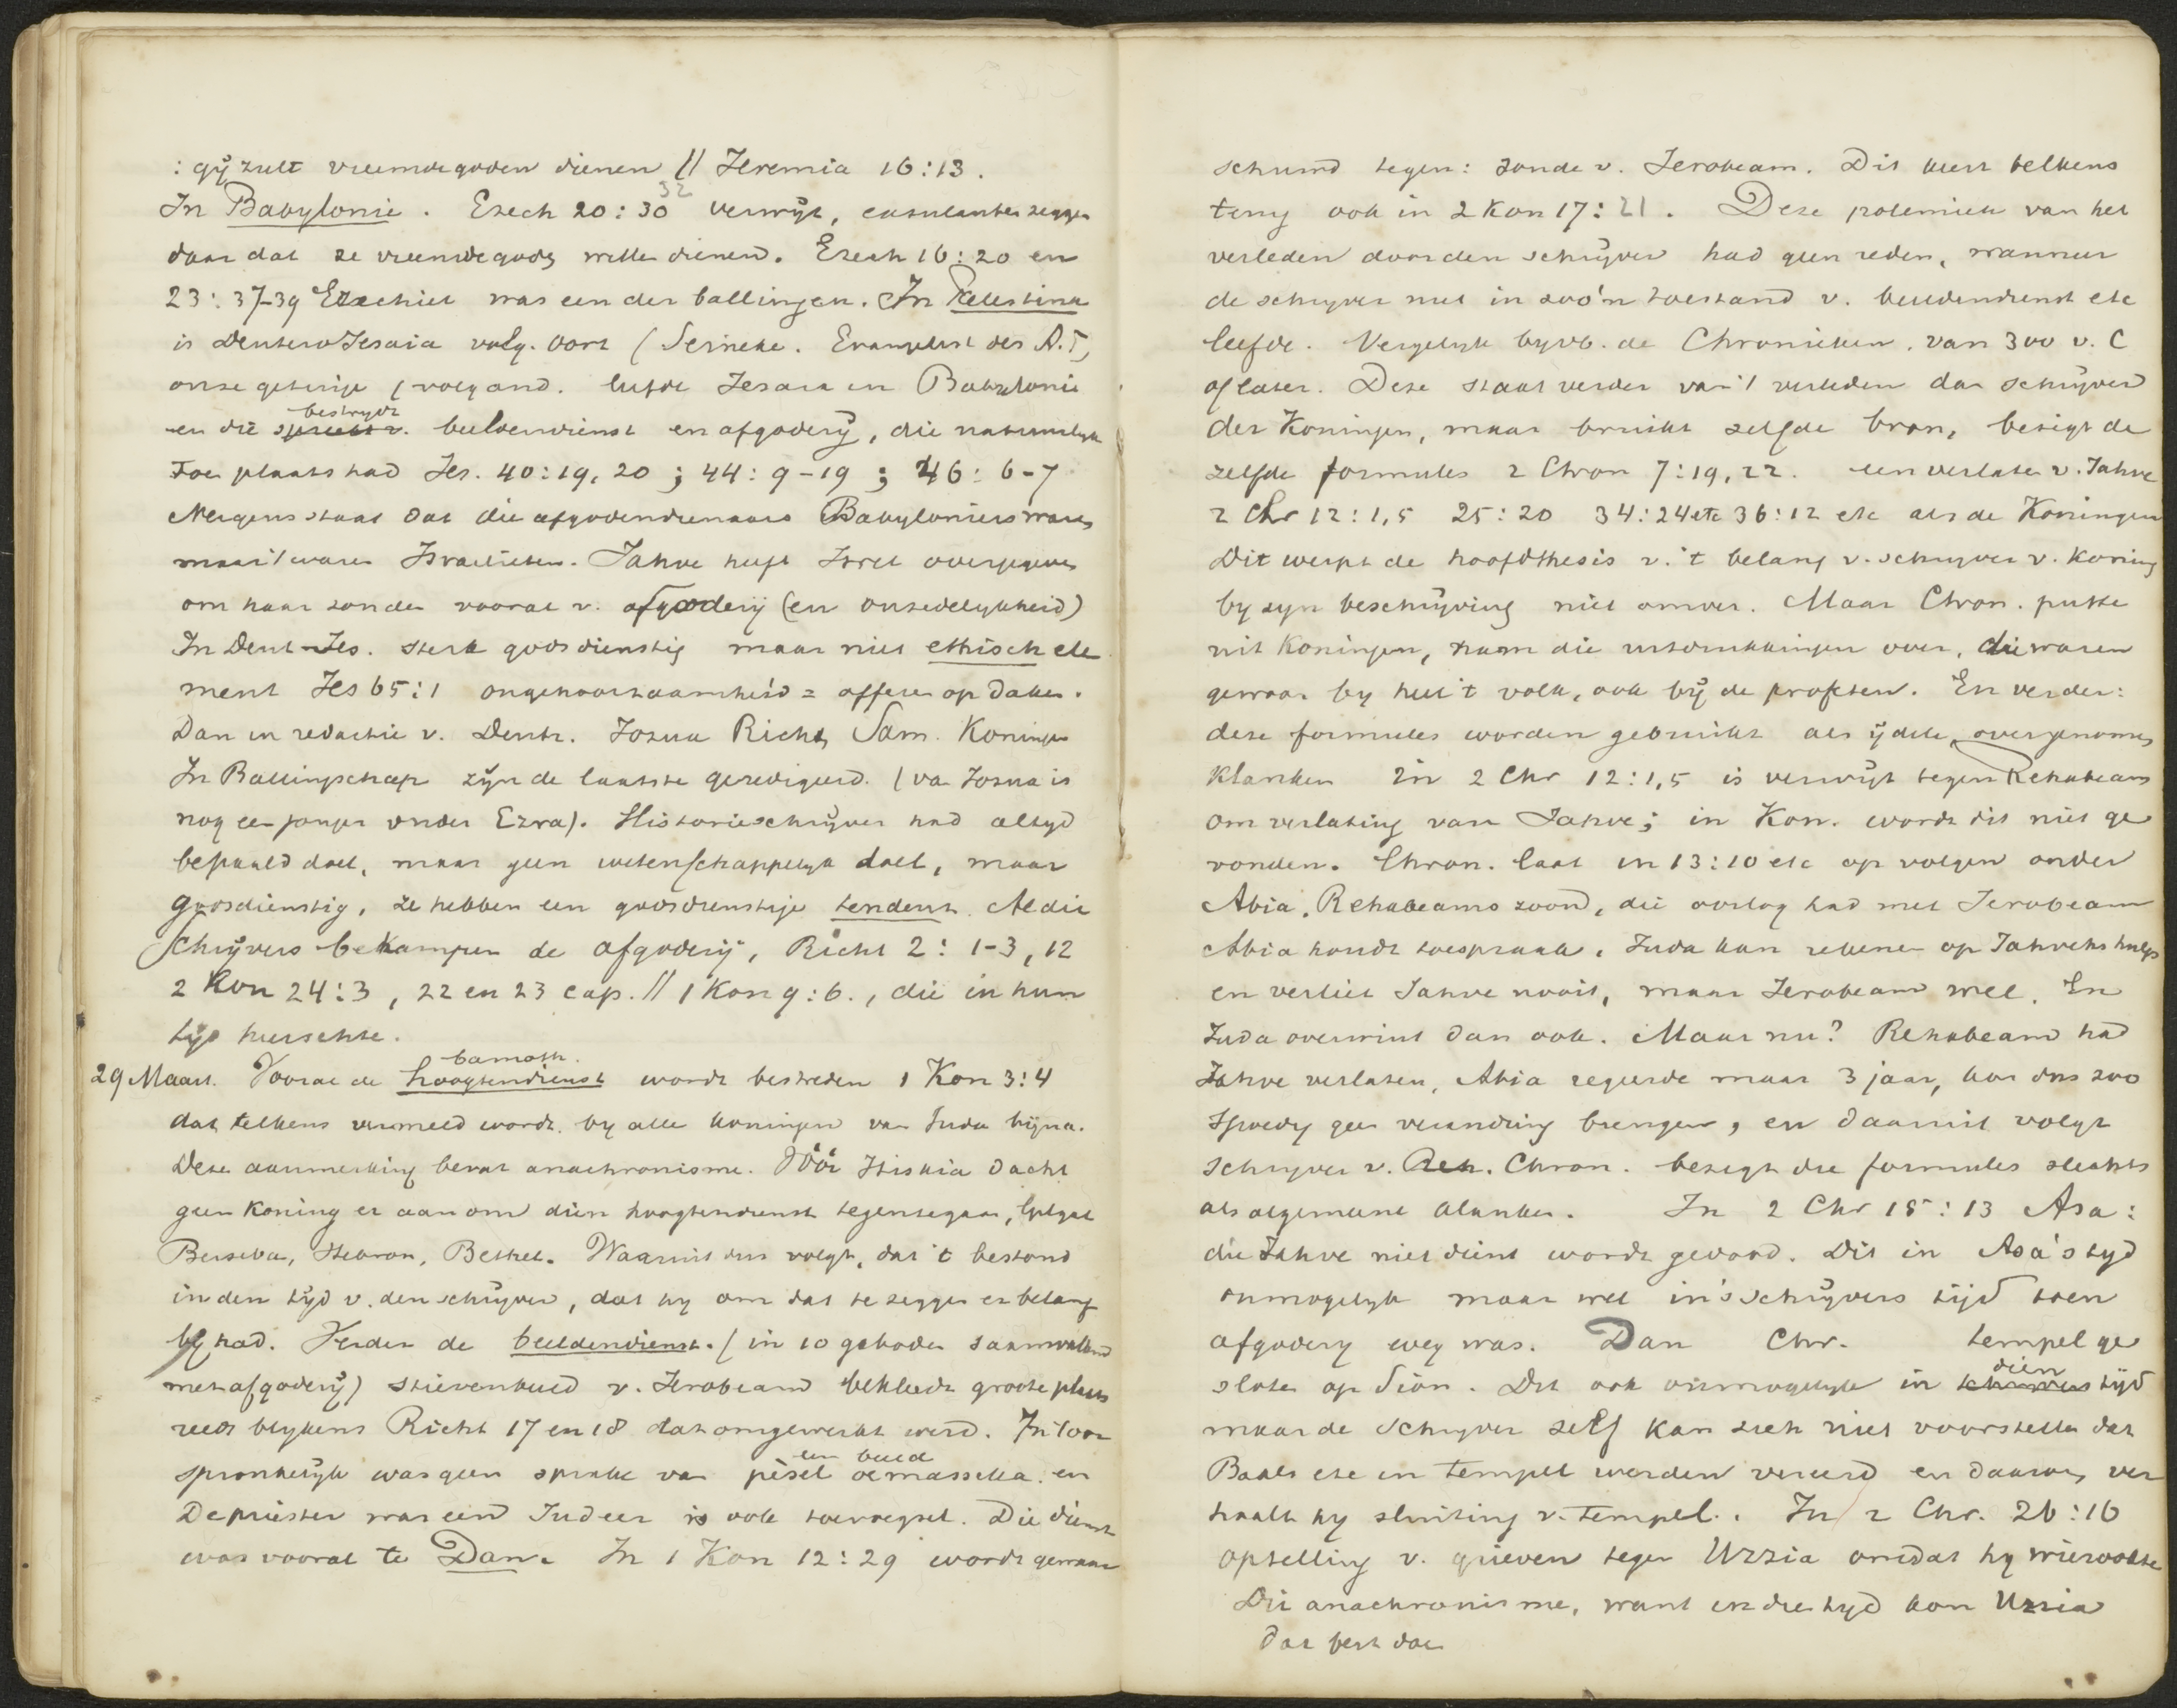 : gij zult vreemde goden dienen // Jeremia 16:13.
In Babylonie. Ezech 20:30 32 verwijt, exsulanten zeggen
daar dat ze vreemde goden willen dienen. Ezech 16:20 en
23:37-39 Ezechiel was een der ballingen. In Palestina
is DeuteroJesaia volg. Oort (Seineke. Evangelist des A.T)
onze getuige (volg and. leefde Jesaia in Babylonie
en die bestrydt beeldendienst en afgoderij, die natuurlyk
Toen plaats had Jes. 40:19, 20 ; 44: 9-19 ; 46: 6-7
Nergens staat dat die afgodendienaars Babyloniers waren
maar 't waren Israelieten. Jahve heeft Israel overgegeven
om haar zonden vooral v. afgoderij (en onzedelykheid)
In Deut-Jes. sterk godsdienstig maar niet ethisch ele
ment Jes 65:1 ongehoorzaamheid = offeren op daken.
Dan in redactie v. Deutr. Jozua Richt, Sam. Koningen
In Ballingschap zijn de laatste geredigeerd. (van Jozua is
nog een jonger onder Ezra). Historieschrijver had altyd
bepaald doel, maar geen wetenschappelyk doel, maar
godsdienstig, ze hebben een godsdienstige tendenz. Al die
Schrijvers bekampen de afgoderij, Richt 2: 1-3, 12
2 Kon 24:3, 22 en 23 cap. // 1 Kon 9:6., die in hun
tijd heerschte.
29 Maart. Vooral de hoogtendienst bamoth. wordt bestreden 1 Kon 3:4
dat telkens vermeld wordt by alle koningen van Juda bijna.
Deze aanmerking bevat anachronisme. Vóór Hiskia dacht
geen Koning er aan om dien hoogtendienst tegentegaan, Gilgal
Berseba, Hebron, Bethel. Waaruit dus volgt, dat 't bestond
in den tijd v. den schrijver, dat hy om dat te zeggen er belang
bij had. Verder de beeldendienst. (in 10 geboden saamvallend
met afgoderij) stierenbeeld v. Jerobeam bekleedt groote plaats
reeds blykens Richt 17 en 18 dat omgewerkt werd. In 't oor
spronkelijk was geen sprake van pèsel oemasseka een beeld en
De priester was een Judeer is ook toevoegsel. Die dienst
was vooral te Dan. In 1 Kon 12:29 wordt gewaar
schuwd tegen: zonde v. Jerobeam. Dit keert telkens
terug ook in 2 Kon 17:21. Deze polemiek van het
verleden door den schrijver had geen reden, wanneer
de schryver niet in zoo'n toestand v. beeldendienst etc
leefde. Vergelijk byvb. de Chronieken. van 300 v. C
of later. Deze staat verder van 't verleden dan schrijver
der Koningen, maar bruikt zelfde bron, bezigt de
zelfde formules 2 Chron 7:19, 22. een verlaten v. Jahve
2 Chr 12:1,5 25:20 34:24 etc 36:12 etc als de Koningen
Dit werpt de hoofdthesis v. 't belang v. schryver v. Koning
by zyn beschrijving niet omver. Maar Chron. putte
uit Koningen, nam die uitdrukkingen over, die waren
gewoon by heel 't volk, ook bij de profeten. En verder:
deze formules worden gebruikt als ijdele, overgenomen
Klanken In 2 Chr 12:1,5 is verwijt tegen Rehabeam
om verlating van Jahve; in Kon. wordt dit niet ge
vonden. Chron. laat in 13:10 etc op volgen onder
Abia, Rehabeams zoon, die oorlog had met Jerobeam
Abia houdt toespraak. Juda kan rekenen op Jahvehs hulp
en verliet Jahve nooit, maar Jerobeam wel. En
Juda overwint dan ook. Maar nu? Rehabeam had
Jahve verlaten, Abia regeerde maar 3 jaar, kon dus zoo
spoedig geen verandering brengen, en daaruit volgt
schryver v. Chron. bezigt die formules slechts
als algemeene klanken. In 2 Chr 15:13 Asa:
die Jahve niet dient wordt gedood. Dit in Asa's tyd
onmogelyk maar wel in 's schrijvers tijd toen
afgodery weg was. Dan Chr. tempel ge
sloten op Sion. Dit ook onmogelyk in dien tijd
maar de schryver zelf kan zich niet voorstellen dat
Baals etc in tempel werden vereerd en daarom ver
haalt hy sluiting v. tempel. In 2 Chr. 26:16
optelling v. grieven tegen Uzzia omdat hy wierookte
Dit anachronisme, want in die tyd kon Uzzia
dat best doen